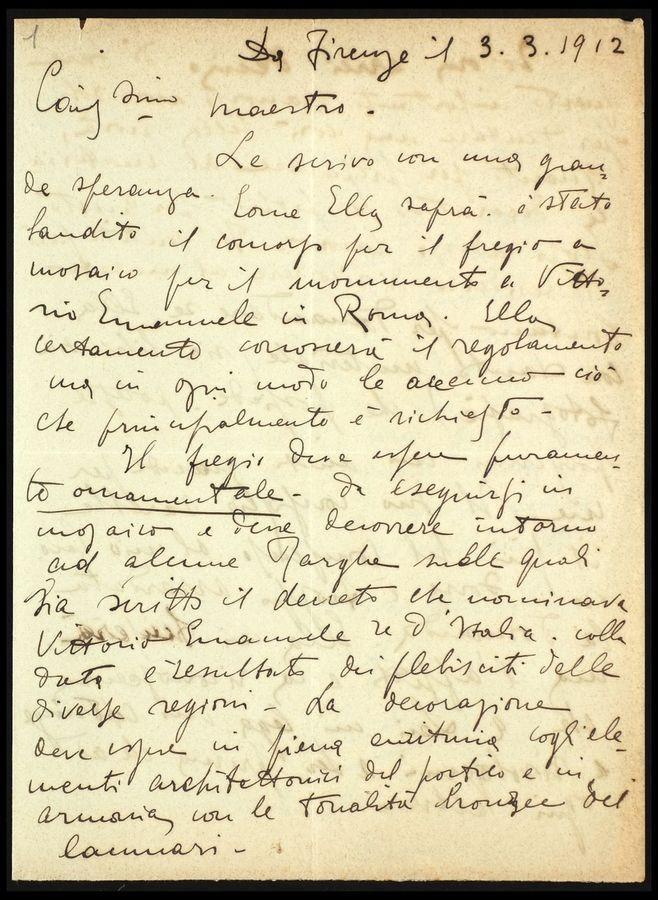 1
Da Firenze il 3. 3. 1912
maestro.
Le scrivo con una gran=
de speranza. Come Ella saprà. è stato
bandito il concorso per il fregio a
mosaico per il monumento a Vitto=
rio Emanuele in Roma. Ella
certamente conoscerà il regolamento
ma in ogni modo le accenno ciò
che principalmente è richiesto -
Il fregio deve essere puramen=
te ornamentale - da eseguirsi in
mosaico e deve decorrere intorno
ad alcune Targhe sulle quali
sia scritto il decreto che nominava
Vittorio Emanuele re d'Italia. colla
data e resultato dei plebisciti delle
diverse regioni - La decorazione
deve essere in piena euritmia cogli ele=
menti architettonici del portico e in
armonia con le tonalità bronzee del
lacunari -